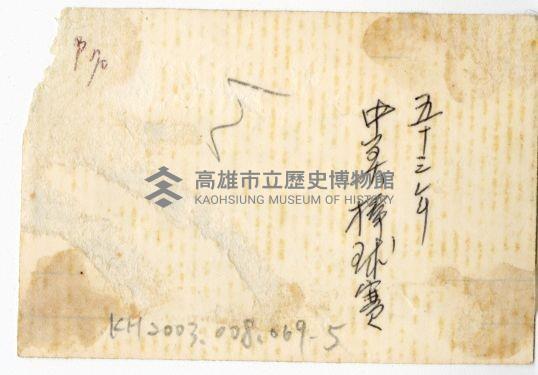 五十三年
中学棒球賽
高雄市立歷史博物館
KAOHSIUNG MUSEUM OF HISTORY
KH2003.008.069-5